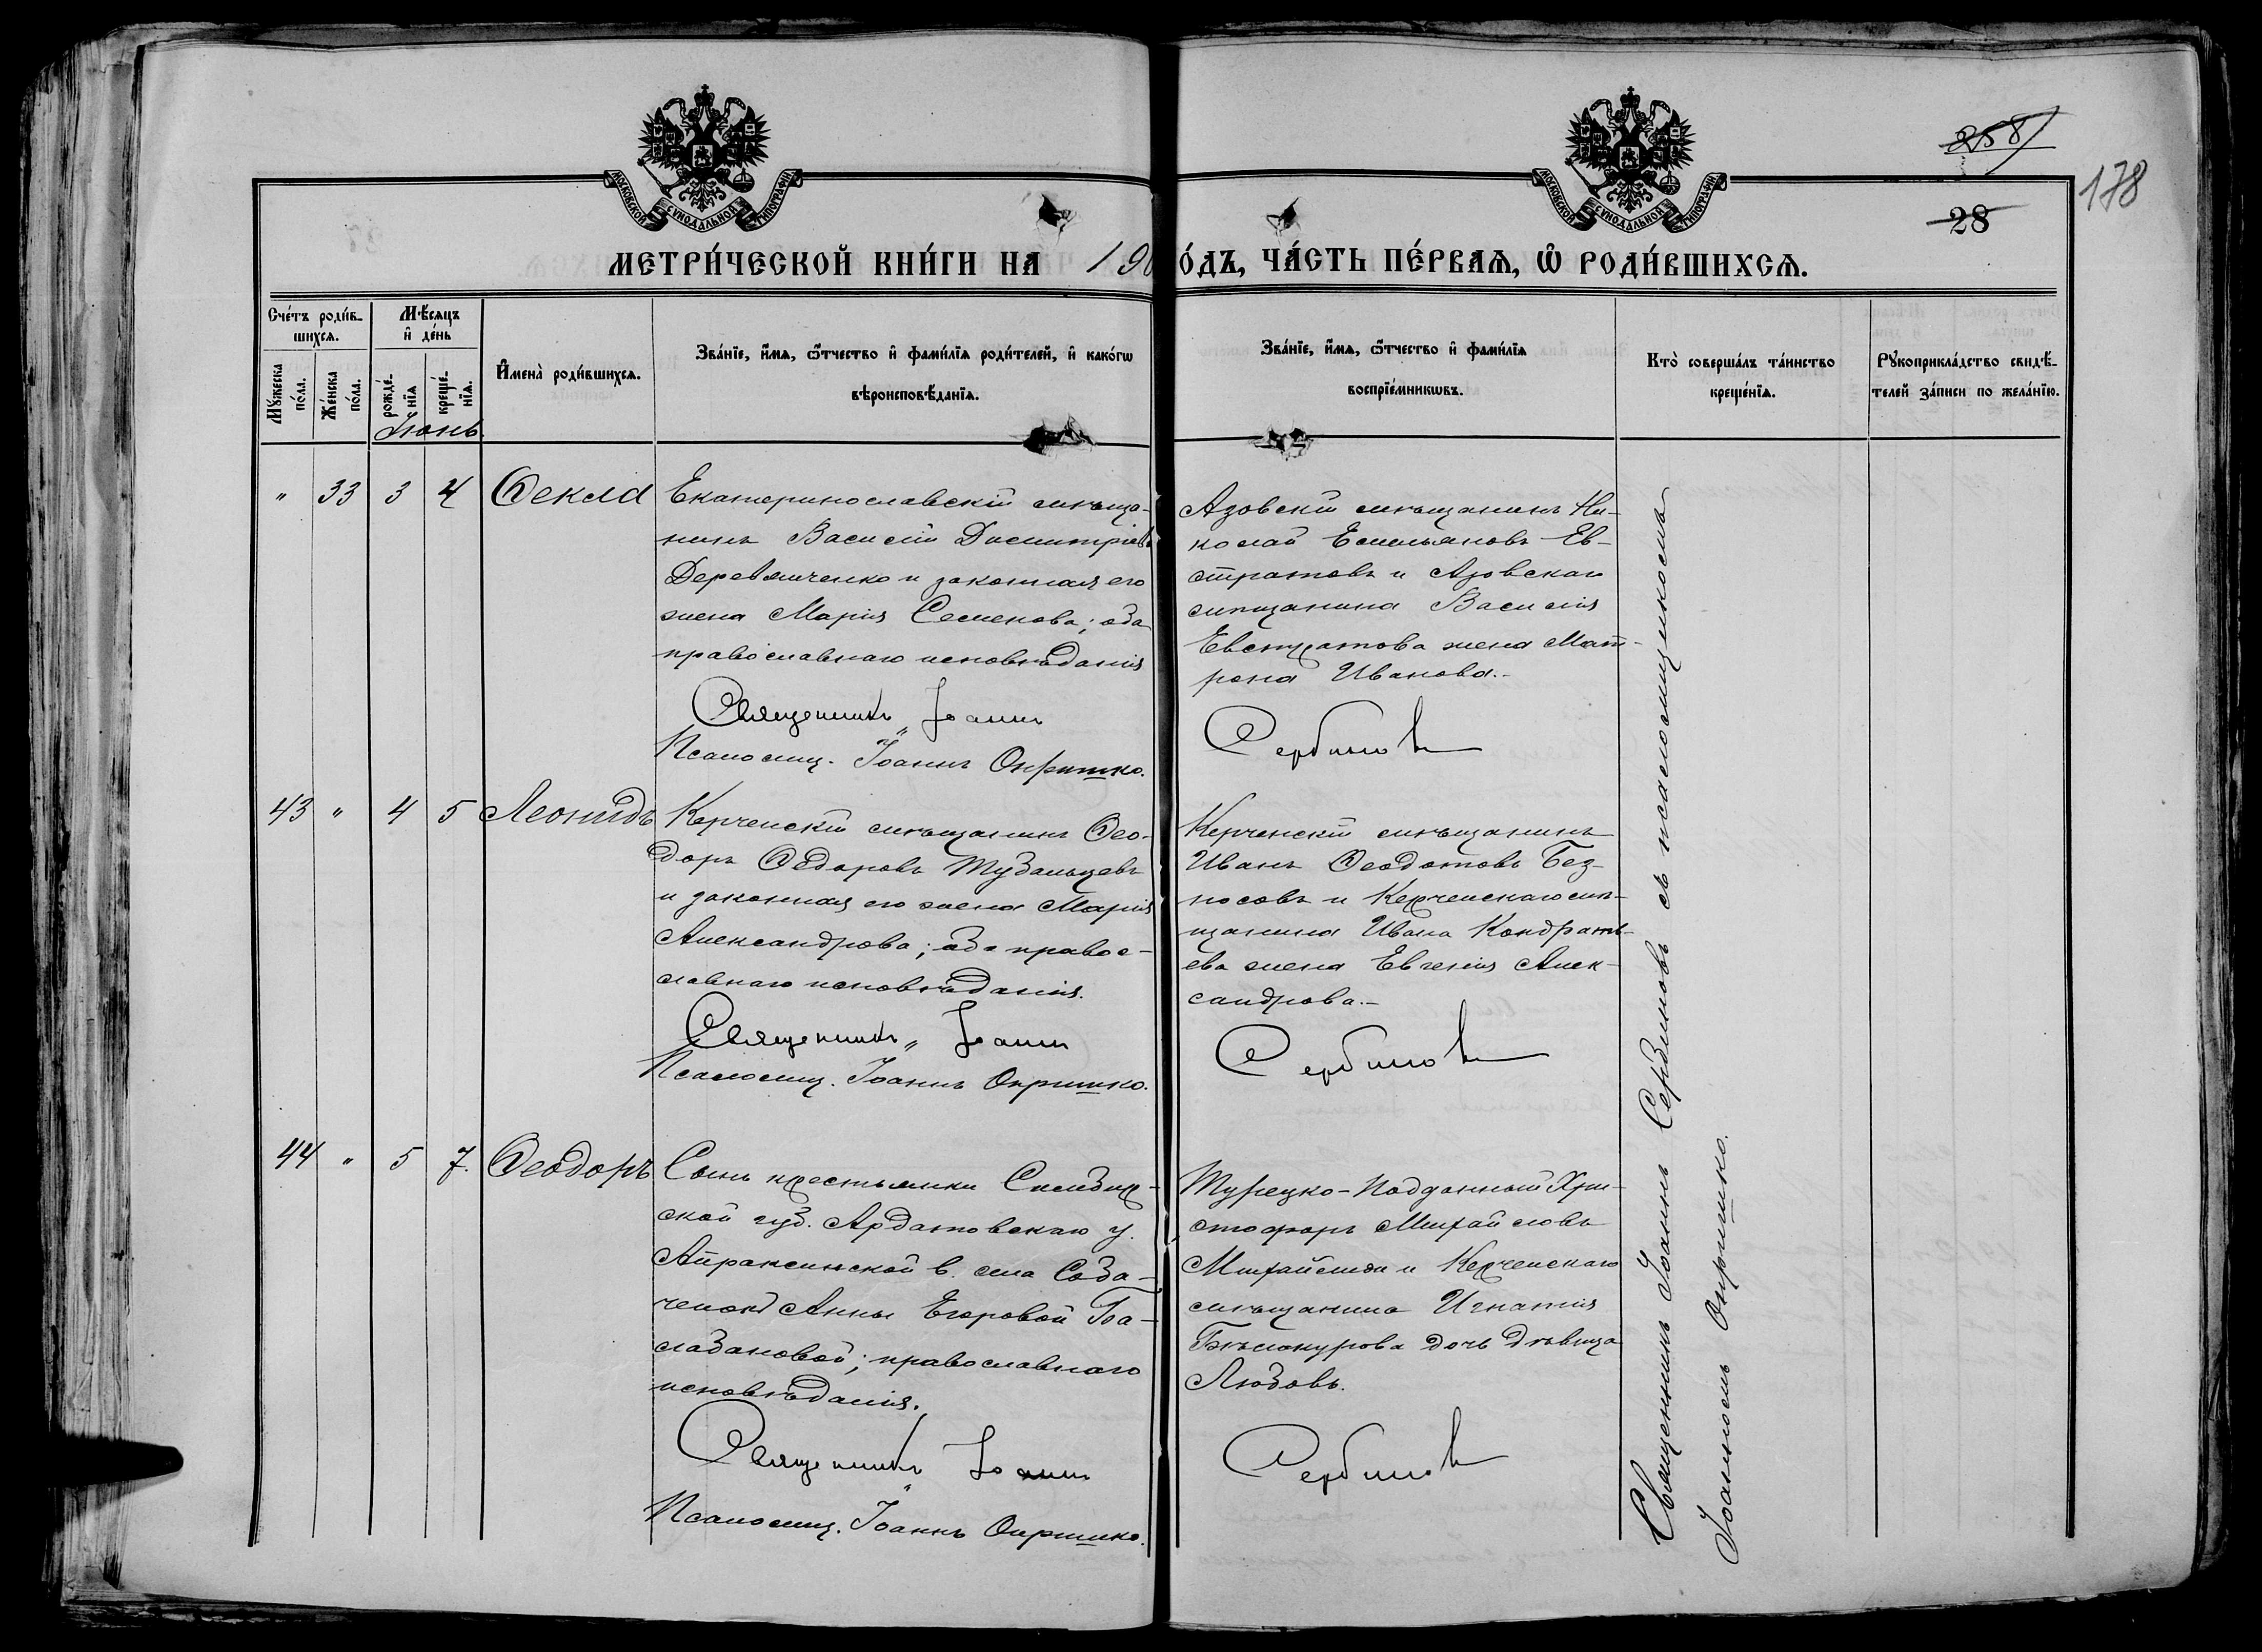 258
178
28
МОСКОВСКОЙ СѴНОДАЛЬНОЙ ТИПОГРАФІИ
МОСКОВСКОЙ СѴНОДАЛЬНОЙ ТИПОГРАФІИ
МЕТРИ́ЧЕСКОЙ КНИ́ГИ НА 190
О́ДЪ, ЧА́СТЬ ПЕ́РВАѦ, Ѡ҆ РОДИ́ВШИХСѦ.
Сче́тъ роди́в-
шихсѧ.
Мꙋ́жеска по́ла.
Же́нска по́ла.
Мѣ́сѧцъ
и҆ де́нь
рожде́-нїѧ
креще́-нїѧ.
Іюнь.
И҆мена̀ роди́вшихсѧ.
Зва́нїе, и҆́мѧ, ѻ҆́тчество и҆ фами́лїѧ роди́телей, и҆ како́гѡ
вѣроисповѣ́данїѧ.
Зва́нїе, и҆́мѧ, ѻ҆́тчество и҆ фами́лїѧ
воспрїе́мникѡвъ.
Кто̀ соверша́лъ та́инство
креще́нїѧ.
Рꙋкоприкла́дство свидѣ́-
телей за́писи по жела́нїю.
" 33 3 4 Ѳекла
Екатеринославскій мѣща-
нинъ Василій Димитріевъ
Деревянченко и законная его
жена Марія Семенова; оба
православнаго исповѣданія
Священникъ Іоаннъ
Псаломщ. Іоаннъ Опришко.
Азовскій мѣщанинъ Ни-
колай Емельяновъ Ев-
стратовъ и Азовскаго
мѣщанина Василія
Евстратова жена Мат-
рона Иванова.-
Сербиновъ
43 " 4 5 Леонидъ
Керченскій мѣщанинъ Ѳео-
доръ Ѳедоровъ
и законная его жена Марія
Александрова; оба правос-
лавнаго исповѣданія.
Священникъ Іоаннъ
Псаломщ. Іоаннъ Опришко.
Керченскій мѣщанинъ
Иванъ Ѳеодотовъ Без-
носовъ и Керченскаго мѣ-
щанина Ивана Кондрать-
ева жена Евгенія Алек-
сандрова.-
Сербиновъ
44 " 5 7. Ѳеодоръ
Сынъ крестьянки Симбир-
ской губ. Ардатовскаго у.
Апраксинской в. села Соба-
ченокъ Анны Егоровой
православнаго
исповѣданія.
Священникъ Іоаннъ
Псаломщ. Іоаннъ Опришко.
Турецко-Подданный Хри-
стофоръ Михайловъ
Михайлиди и Керченскаго
мѣщанина Игнатія
Бѣлокурова дочь дѣвица
Любовь.
Сербиновъ
Священникъ Іоаннъ Сербиновъ съ псаломщикомъ
Іоанномъ Опришко.